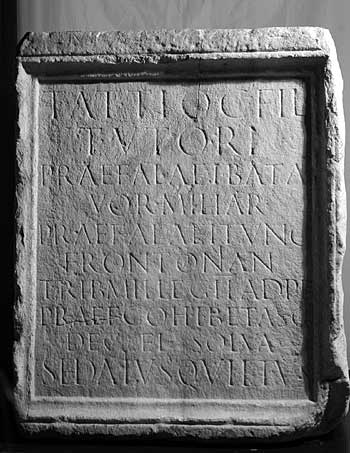 T ATTIO FIL
TVTORI
PRAEF ALAE I BATA
VOR MILIAR
PRAEF ALAE I TVNG
FRONTONIAN
TRIB MIL LEG II ADP
PRAEF COH I BETASO
DEC FL SOLVA
SEDATVS QVIETVS